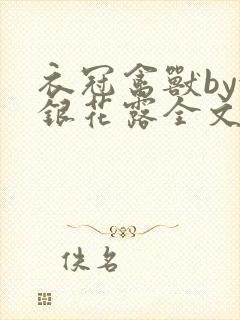 衣冠禽獸by
銀花露全文
佚名